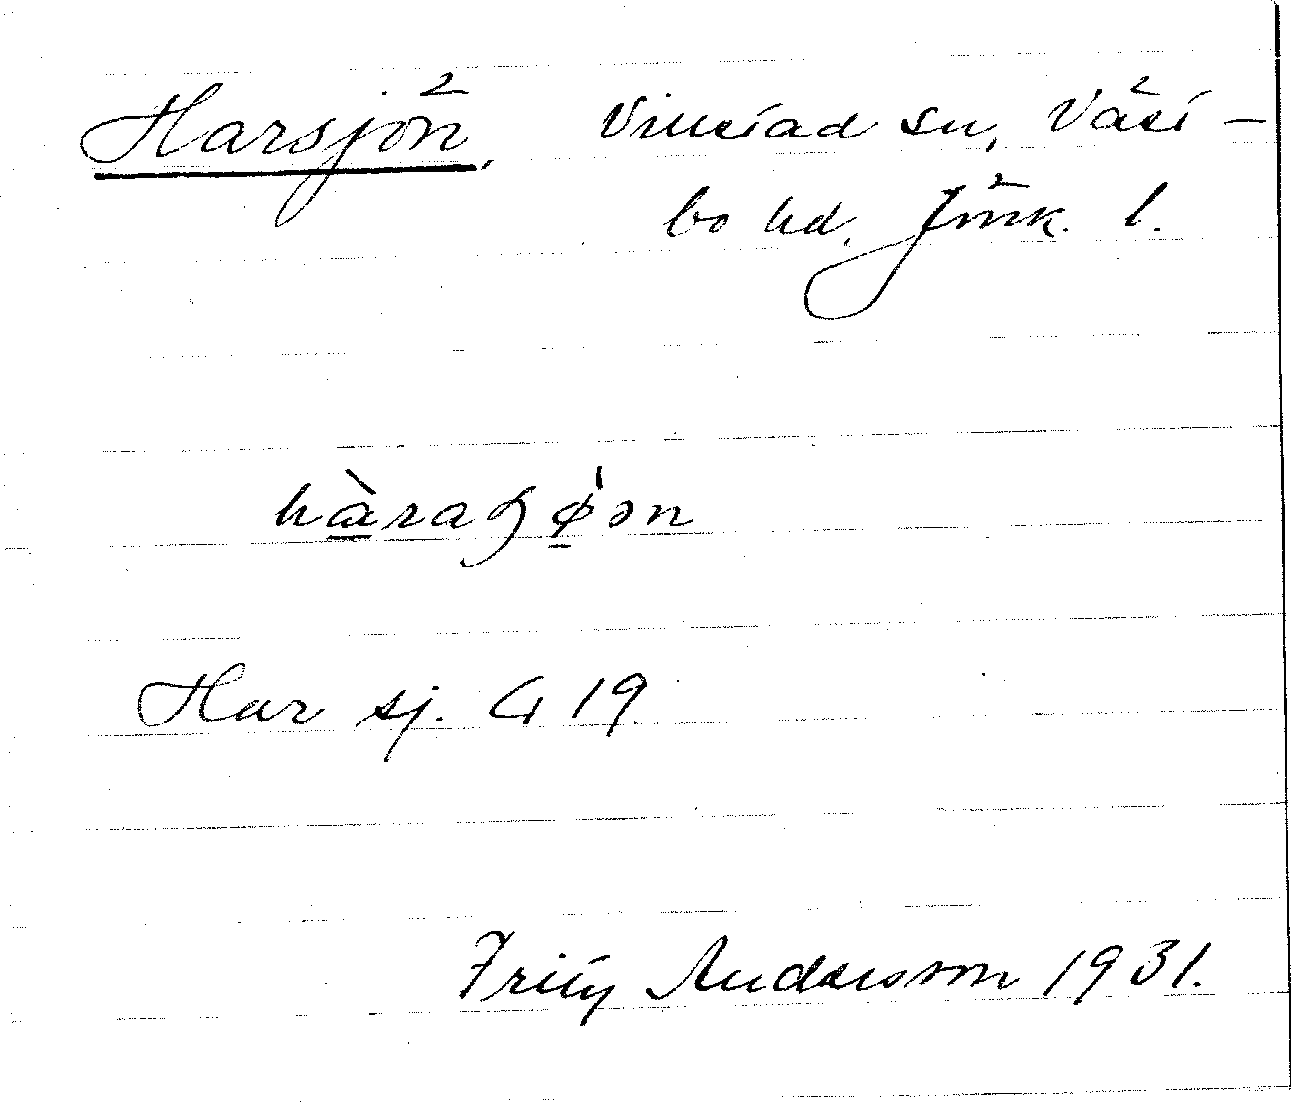 Harsjön, Villstad sn, Väst-
bo hd. Jönk. l.
hàraʃø̀ən
Har sj. G 19
Fritz Andersson 1931.